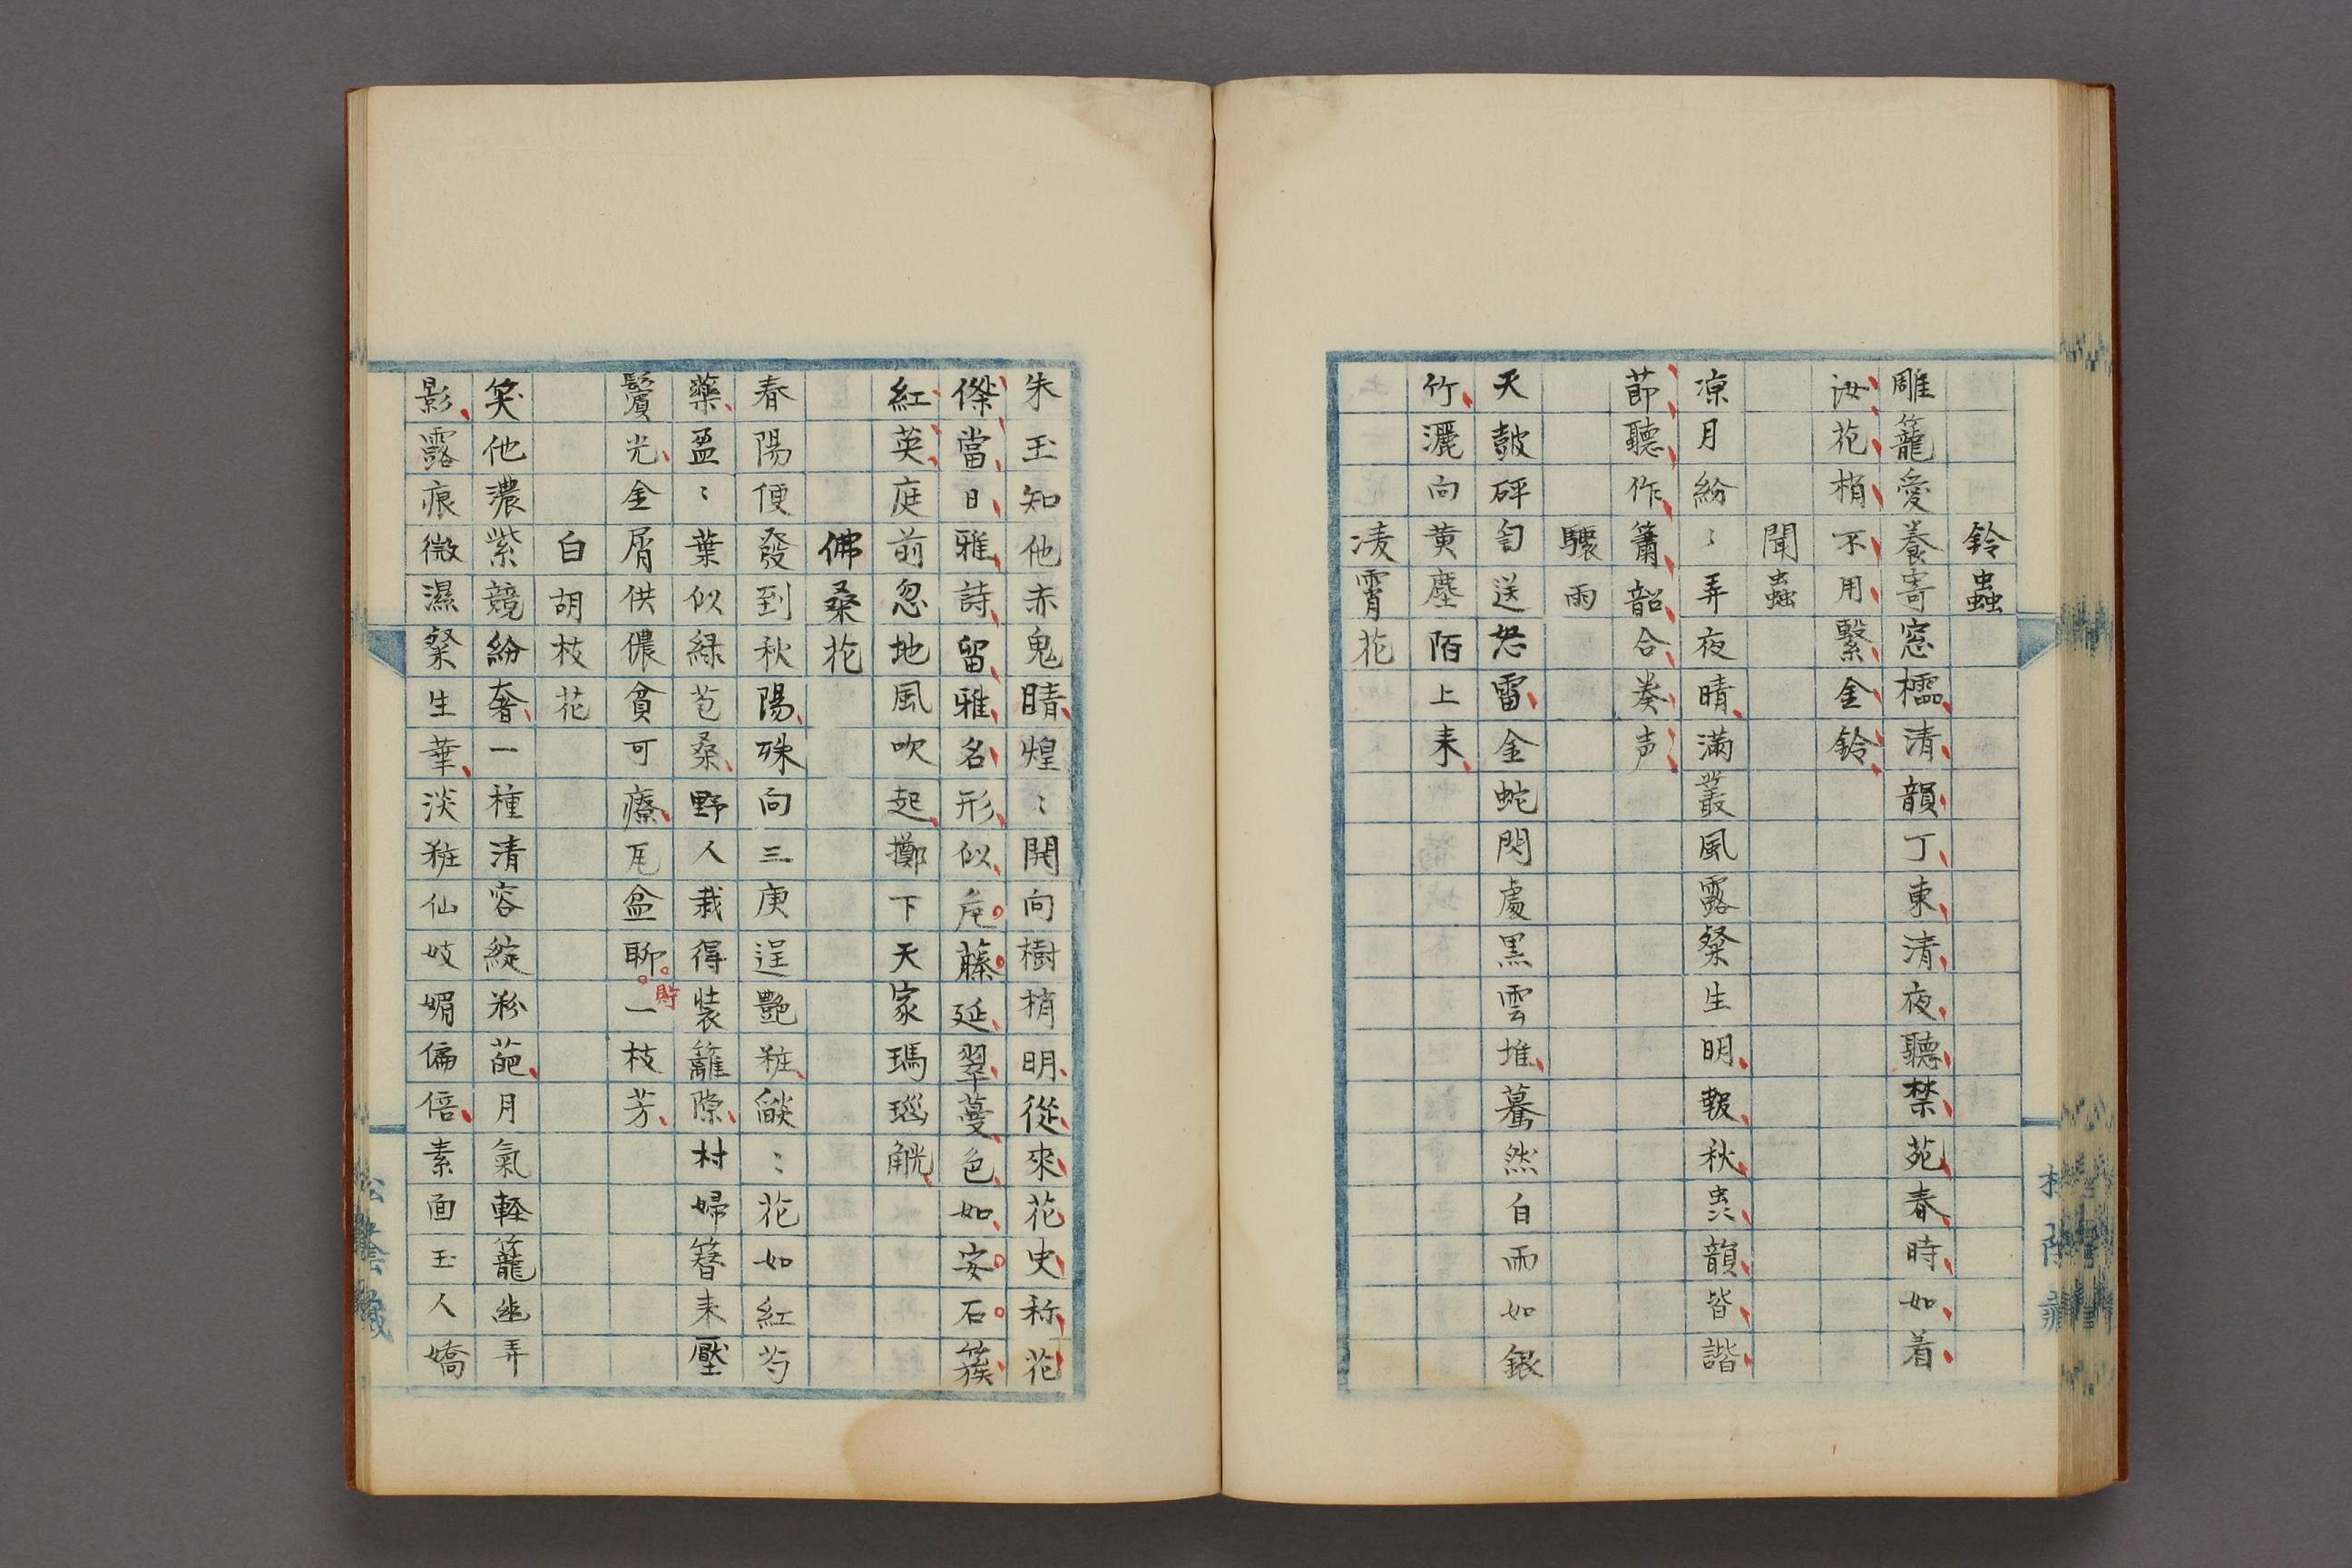 鈴蟲
雕籠愛養寄窓櫺清韻丁東清夜聽禁苑春時如着
汝花梢不用繫金鈴
聞蟲
凉月紛〻弄夜晴滿叢風露粲生明報秋蛩韻皆諧
節聽作簫韶合奏声
驟雨
天鼓砰訇送怒雷金蛇閃處黒雲堆驀然白雨如銀
竹灑向黄塵陌上来
凌霄花
朱玉知他赤鬼晴煌〻開向樹梢明從來花史称花
傑當日雅詩留雅名形似危藤延翠蔓色如安石簇
紅英庭前忽地風吹起擲下天家瑪瑙觥
佛桑花
春陽便發到秋陽殊向三庚逞艶粧燄〻花如紅芍
藥盈〻葉似緑苞桑野人栽得装籬隙村婦簪来壓
鬢光金屑供儂貧可療瓦盆聊一枝芳
貯
白胡枝花
笑他濃紫競紛奢一種清容綻粉葩月氣軽籠幽弄
影露痕微濕粲生華淡粧仙妓媚偏倍素面玉人嬌
松陰蔵